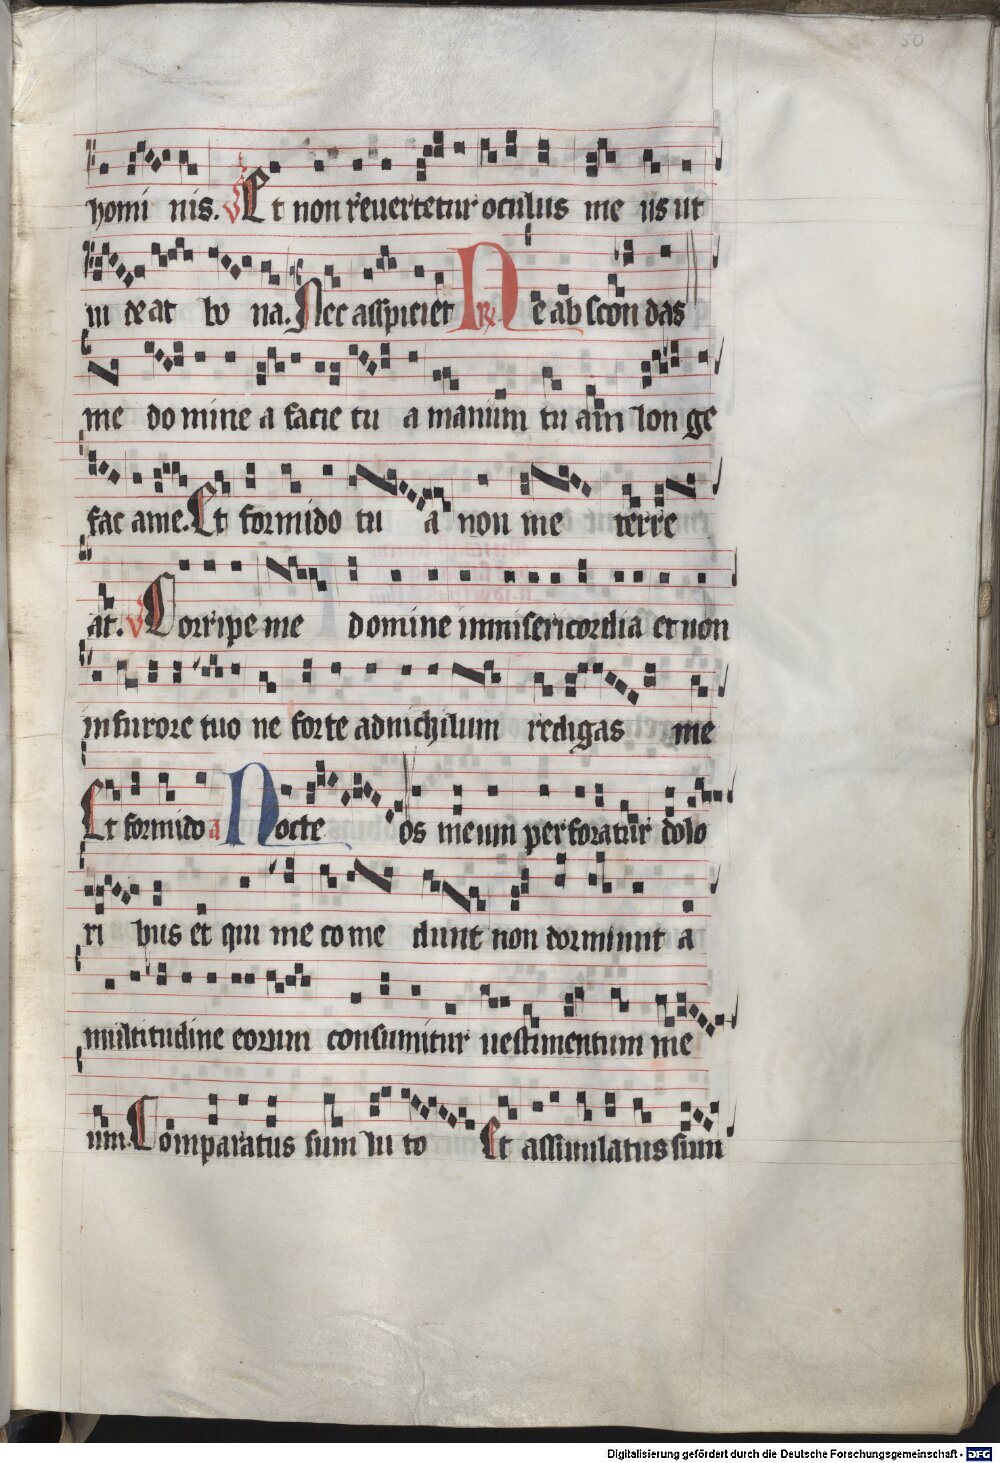 50
homi nis. V Et non reuertetur oculus me us ut
ui de at bo na. Nec aspiciet R Ne ab scon das
me do mine a facie tu a manum tu am lon ge
fac a me. Et formido tu a non me terre
at. V Corripe me domine in misericordia et non
in furore tuo ne forte ad nichilum redigas me
Et formido a Nocte os meum perforatur dolo
ri bus et qui me co me dunt non dormiunt a
multitudine eorum consumitur uestimentum me
um. Comparatus sum lu to Et assimulatus sum
Digitalisierung gefördert durch die Deutsche Forschungsgemeinschaft - DFG